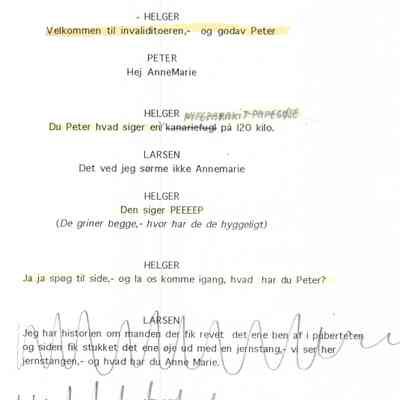 - HELGER
Velkommen til invaliditoeren,-  og godav Peter
PETER
Hej AnneMarie
HELGER
Du Peter hvad siger en kanariefugl på 120 kilo.
LARSEN
Det ved jeg sørme ikke Annemarie
HELGER
Den siger PEEEEP
(De griner begge,- hvor har de de hyggeligt)
HELGER
Ja ja spøg til side,- og la os komme igang, hvad  har du Peter?
LARSEN
Jeg har historien om manden der fik revet  det ene ben af i puberteten
og siden fik stukket det ene øje ud med en jernstang,- vi ser her
jernstangen,- og hvad har du Anne Marie.